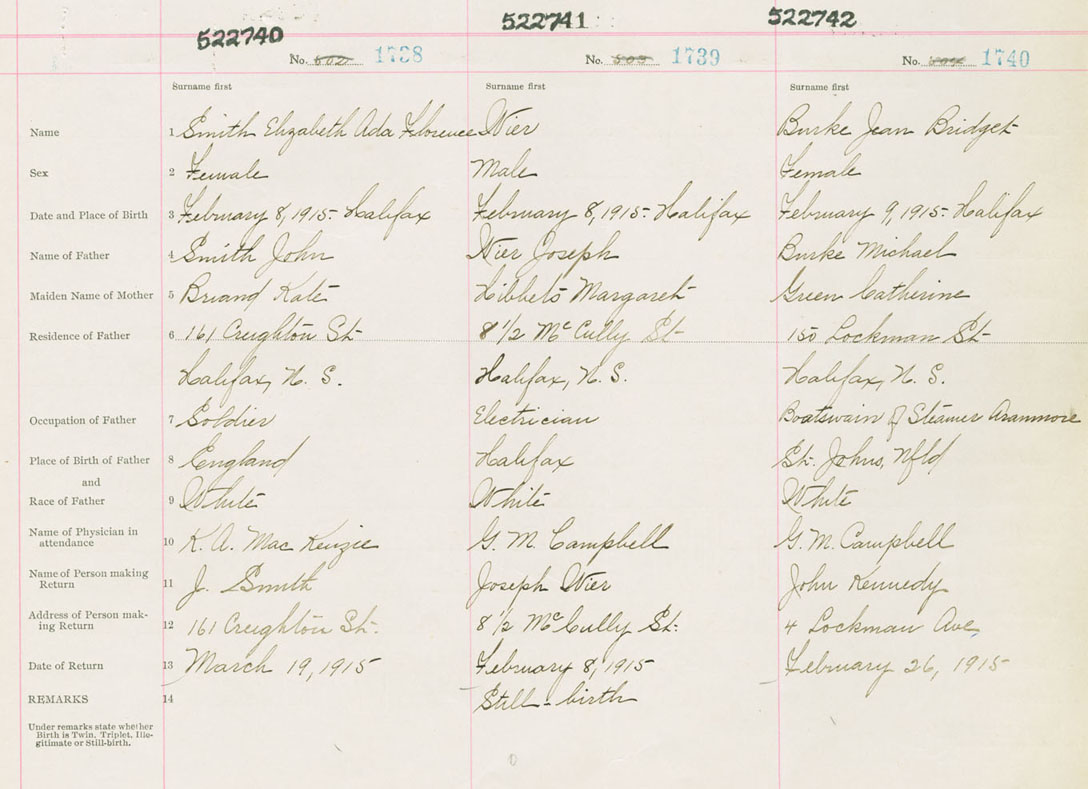 522740 522741 522742
No. 602 1738 No. 603 1739 No. 604 1740
Surname first Surname first Surname first
Name 1 Smith Elizabeth Ada Florence Wier Burke Jean Bridget
Sex 2 Female Male Female
Date and Place of Birth 3 February 8, 1915- Halifax February 8, 1915- Halifax February 9, 1915- Halifax
Name of Father 4 Smith John Wier Joseph Burke Michael
Maiden Name of Mother 5 Briand Kate Hibbets Margaret Green Catherine
Residence of Father 6 161 Creughton St. 8 1/2 McCully St. 150 Lockman St.
Halifax, N. S. Halifax, N. S. Halifax, N. S.
Occupation of Father 7 Soldier Electrician Boatswain of Steamer Aranmore
Place of Birth of Father 8 England Halifax St. Johns, Nfld
and
Race of Father 9 White White White
Name of Physician in
attendance 10 K. A. MacKenzie G. M. Campbell G. M. Campbell
Name of Person making
Return 11 J. Smith Joseph Wier John Kennedy
Address of Person mak-
ing Return 12 161 Creughton St. 8 1/2 McCully St. 4 Lockman Ave,
Date of Return 13 March 19, 1915 February 8, 1915 February 26, 1915
REMARKS 14 Still-birth
Under remarks state whether
Birth is Twin, Triplet, Ille-
gitimate or Still-birth.